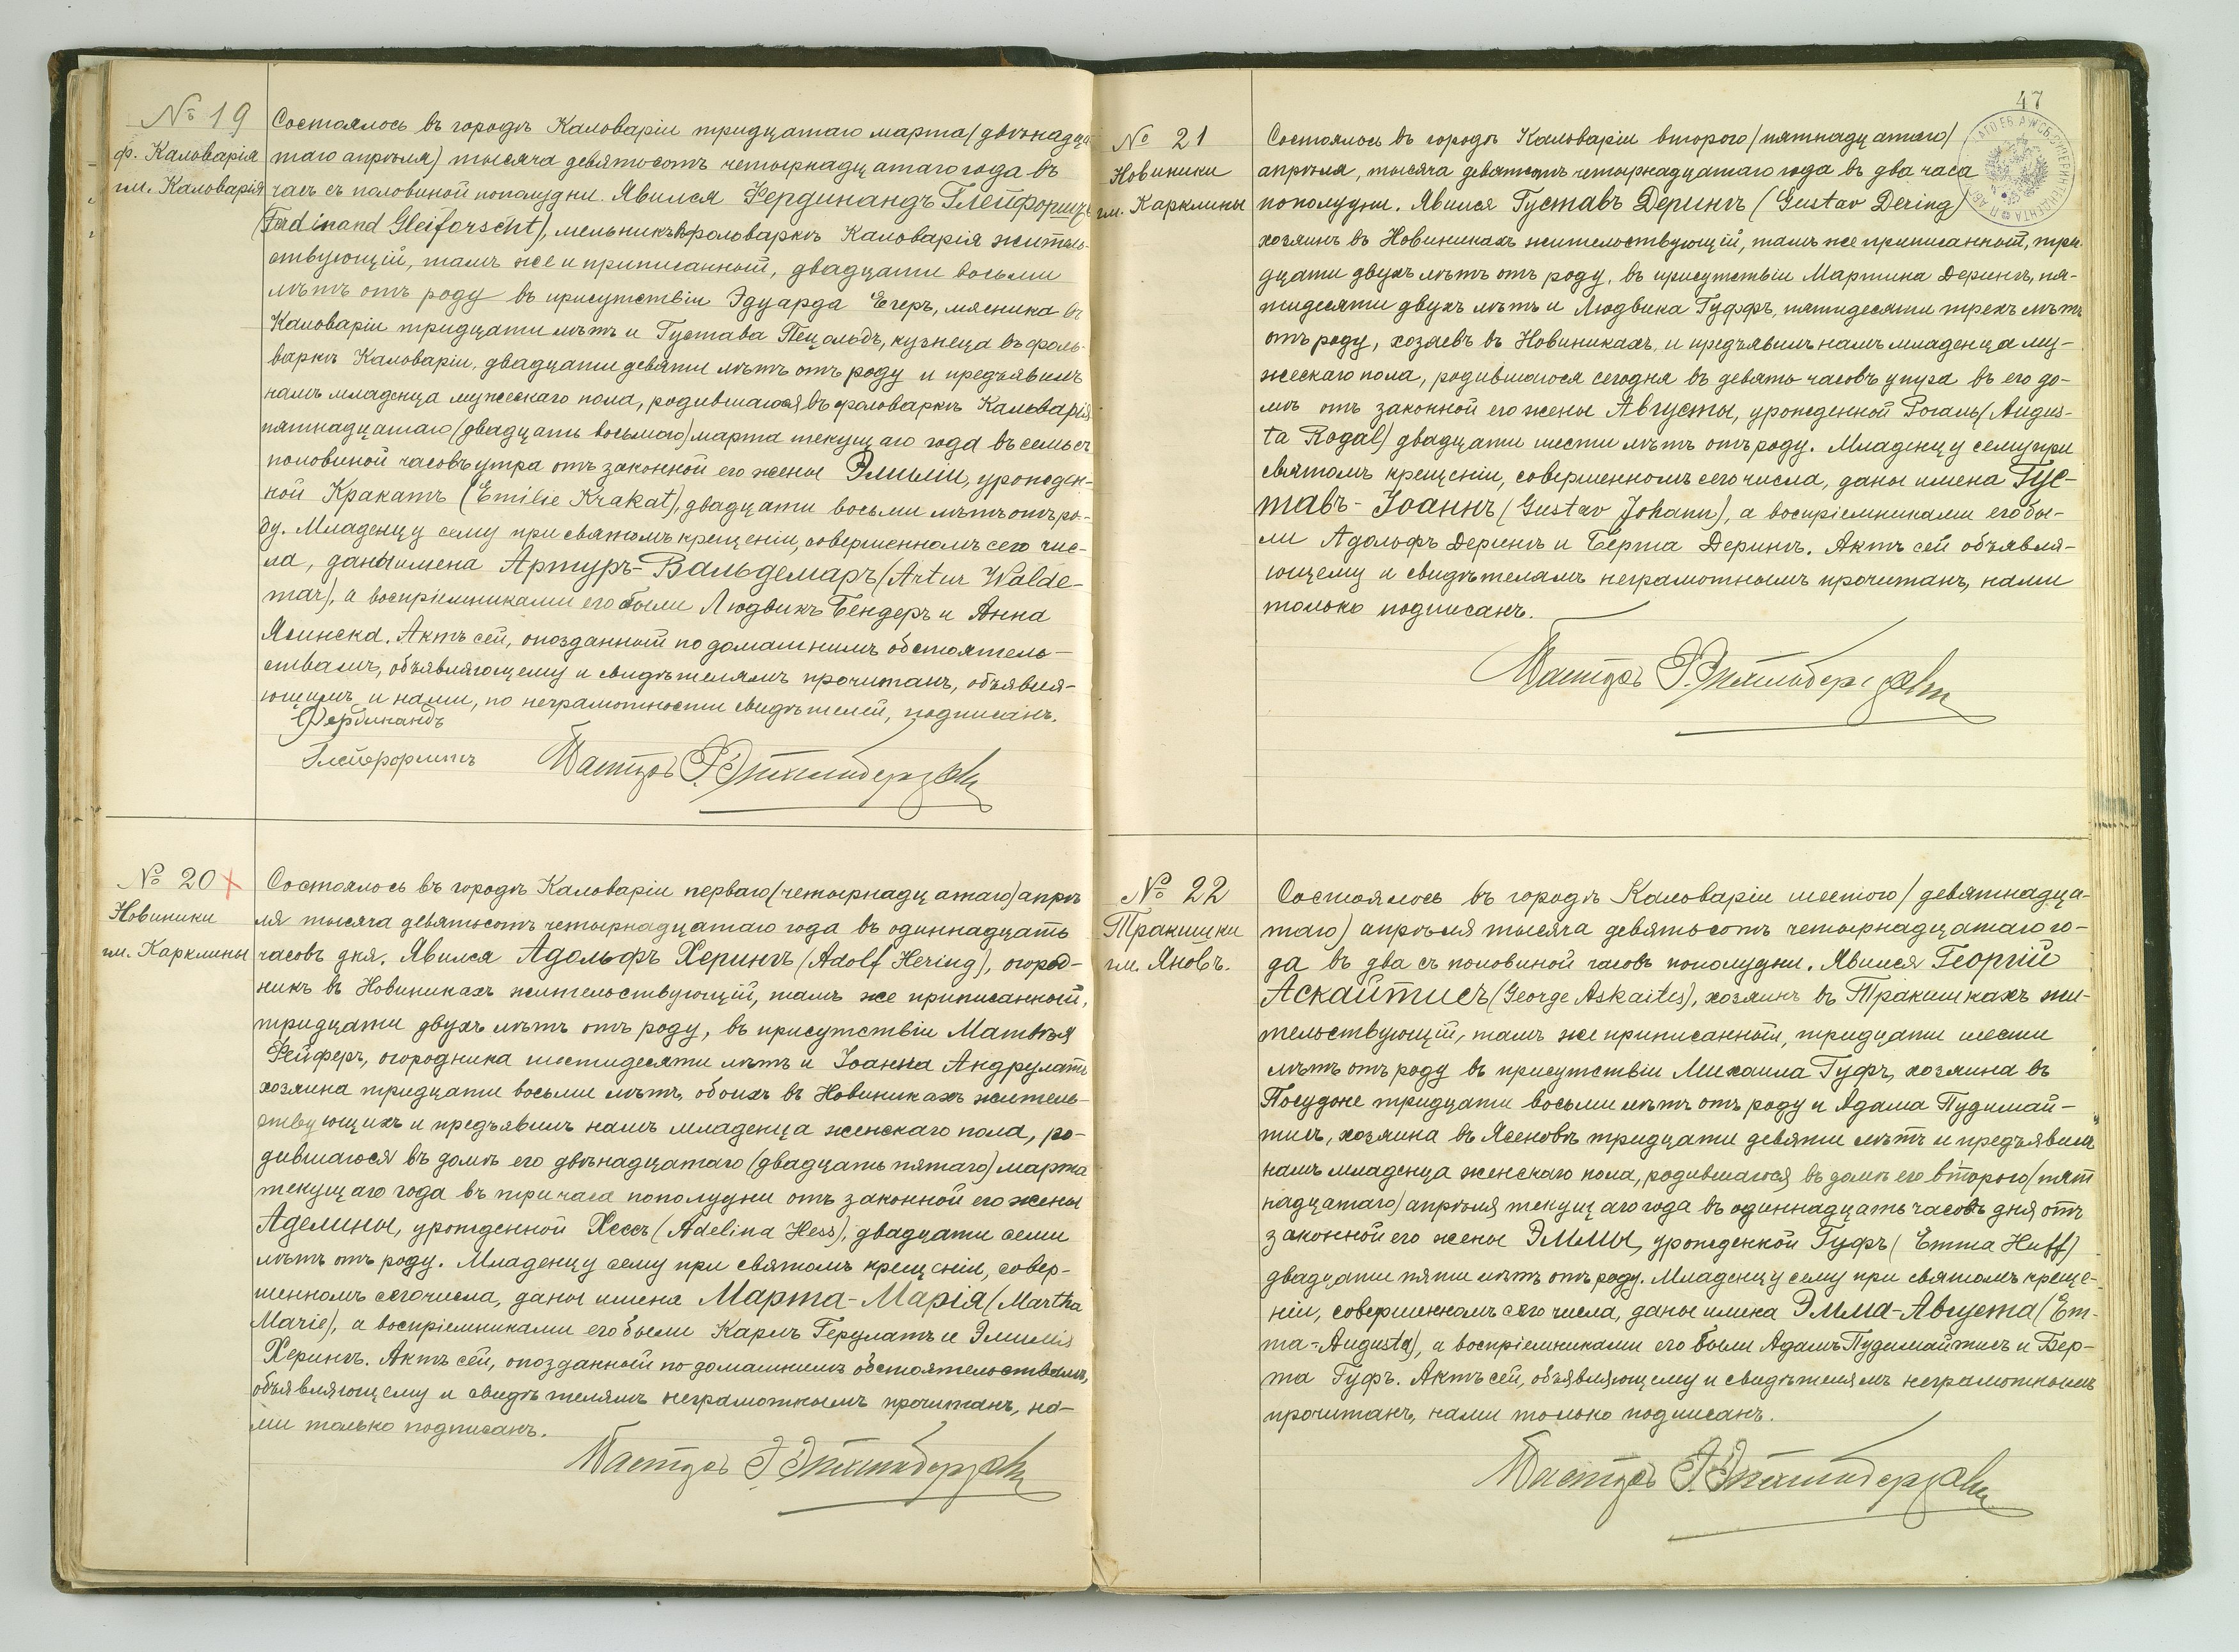 № 19
ф. Кальварія
гм. Кальварія
Состоялось въ городѣ Кальваріи тридцатаго марта (двѣнадца
таго апрѣля) тысяча девятьсотъ четырнадцатаго года въ
часъ съ половиной пополудни. Явился Фердинандъ Глейфоршт
(Ferdinand Gleiforscht), мельникъ въ фольваркѣ Кальварія житель-
ствующій, тамъ же и приписанный, двадцати восьми
лѣтъ отъ роду въ присутствіи Эдуарда Егеръ, мясника въ
Кальваріи тридцати лѣтъ и Густава Пецольдъ, кузнеца въ фоль-
варкѣ Кальваріи, двадцати девяти лѣтъ отъ роду и предъявилъ
намъ младенца мужескаго пола, родившагося въ фольваркѣ Кальварія
пятнадцатаго (двадцать восьмого) марта текущаго года въ семь съ
половиной часовъ утра отъ законной его жены Эмиліи, урожден-
ной Кракатъ (Emilie Krakat), двадцати восьми лѣтъ отъ ро-
ду. Младенцу сему при святомъ крещеніи, совершенномъ сего чис-
ла, даны имена Артуръ-Вальдемаръ (Artur Walde-
mar), а воспріемниками его были Людвикъ Бендеръ и Анна
Ясинска. Актъ сей, опозданный по домашнимъ обстоятель-
ствамъ, объявляющему и свидѣтелямъ прочитанъ, объявля-
ющимъ и нами, по неграмотности свидѣтелей, подписанъ.
Фердинандъ
Глейфорштъ Пасторъ
№ 20 х
Новиники
гм. Карклины
Состоялось въ городѣ Кальваріи перваго (четырнадцатаго) апрѣ
ля тысяча девятьсотъ четырнадцатаго года въ одиннадцать
часовъ дня. Явился Адольфъ Херингъ (Adolf Hering), огород-
никъ въ Новиникахъ жительствующій, тамъ же приписанный,
тридцати двухъ лѣтъ отъ роду, въ присутствіи Матвѣя
Фейферъ, огородника шестидесяти лѣтъ и Іоанна Андрулатъ
хозяина тридцати восьми лѣтъ, обоихъ въ Новиникахъ житель-
ствующихъ и предъявилъ намъ младенца женскаго пола, ро-
дившагося въ домѣ его двѣнадцатаго (двадцать пятаго) марта
текущаго года въ три часа пополудни отъ законной его жены
Аделины, урожденной Хессъ (Adelina Hess), двадцати семи
лѣтъ отъ роду. Младенцу сему при святомъ крещеніи, совер-
шенномъ сего числа, даны имена Марта-Марія (Martha
Marie), а воспріемниками его были Карлъ Герулатъ и Эмилія
Херингъ. Актъ сей, опозданный по домашнимъ обстоятельствамъ,
объявляющему и свидѣтелямъ неграмотнымъ прочитанъ, на-
ми только подписанъ.
Пасторъ
47
№ 21
Новиники
гм. Карклины
Состоялось въ городѣ Кальваріи второго (пятнадцатаго)
апрѣля, тысяча девятьсотъ четырнадцатаго года въ два часа
пополудни. Явился Густавъ Дерингъ (Gustav Dering)
хозяинъ въ Новиникахъ жительствующій, тамъ же приписанный, три-
дцати двухъ лѣтъ отъ роду, въ присутствіи Мартина Дерингъ, пя-
тидесяти двухъ лѣтъ и Людвика Гуффъ, пятидесяти трехъ лѣтъ
отъ роду, хозяевъ въ Новиникахъ, и предъявилъ намъ младенца му-
жескаго пола, родившагося сегодня въ девять часовъ утра въ его до-
мѣ отъ законной его жены Августы, урожденной Рогаль (Augus-
ta Rogal) двадцати шести лѣтъ отъ роду. Младенцу сему при
святомъ крещеніи, совершенномъ сего числа, даны имена Гус-
тавъ-Іоаннъ (Gustav Johann), а воспріемниками его бы-
ли Адольфъ Дерингъ и Берта Дерингъ. Актъ сей объявля-
ющему и свидѣтелямъ неграмотнымъ прочитанъ, нами
только подписанъ.
Пасторъ
№ 22
Тракишки
гм. Яновъ.
Состоялось въ городѣ Кальваріи шестого (девятнадца-
таго) апрѣля тысяча девятьсотъ четырнадцатаго го-
да въ два съ половиной часовъ пополудни. Явился Георгій
Аскайтисъ (George Askaites), хозяинъ въ Тракишкахъ жи-
тельствующій, тамъ же приписанный, тридцати шести
лѣтъ отъ роду въ присутствіи Михаила Гуфъ, хозяина въ
Посудоне тридцати восьми лѣтъ отъ роду и Адама Пудимай-
тисъ, хозяина въ Ясеновѣ тридцати девяти лѣтъ и предъявилъ
намъ младенца женскаго пола, родившагося въ домѣ его второго (пят
надцатаго) апрѣля текущаго года въ одиннадцать часовъ дня отъ
законной его жены Эммы, урожденной Гуфъ (Emma Huff)
двадцати пяти лѣтъ отъ роду. Младенцу сему при святомъ креще-
ніи, совершенномъ сего числа, даны имена Эмма-Августа (Em-
ma-Augusta), а воспріемниками его были Адамъ Пудимайтисъ и Бер-
та Гуфъ. Актъ сей, объявляющему и свидѣтелямъ неграмотнымъ
прочитанъ, нами только подписанъ.
Пасторъ